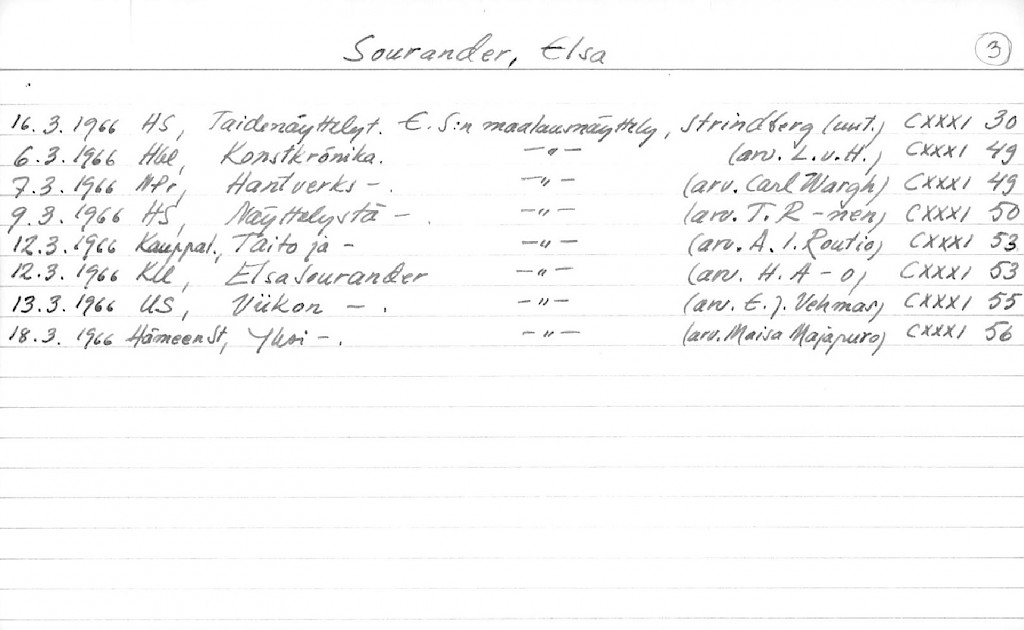 Sourander, Elsa
3
16.3.1966 HS, Taidenäyttelyt. E.S:n maalausnäyttely, Strindberg (uut.) CXXXI 30
6.3.1966 Hbl, Konstkrönika. -"- (arv. L.v.H.) CXXXI 49
7.3.1966 MPr, Hantverks -. -"- (arv. Carl Wargh) CXXXI 49
9.3.1966 HS, Näyttelystä -. -"- (arv. T. R-nen) CXXXI 50
12.3.1966 Kauppal., Taito ja - -"- (arv. A. I. Routio) CXXXI 53
12.3.1966 KU, Elsa Sourander -"- (arv. H. A-o) CXXXI 53
13.3.1966 US, Viikon -. -"- (arv. E. J. Vehmas) CXXXI 55
18.3.1966 HämeenSt, Yksi -. -"- (arv. Maisa Majapuro) CXXXI 56